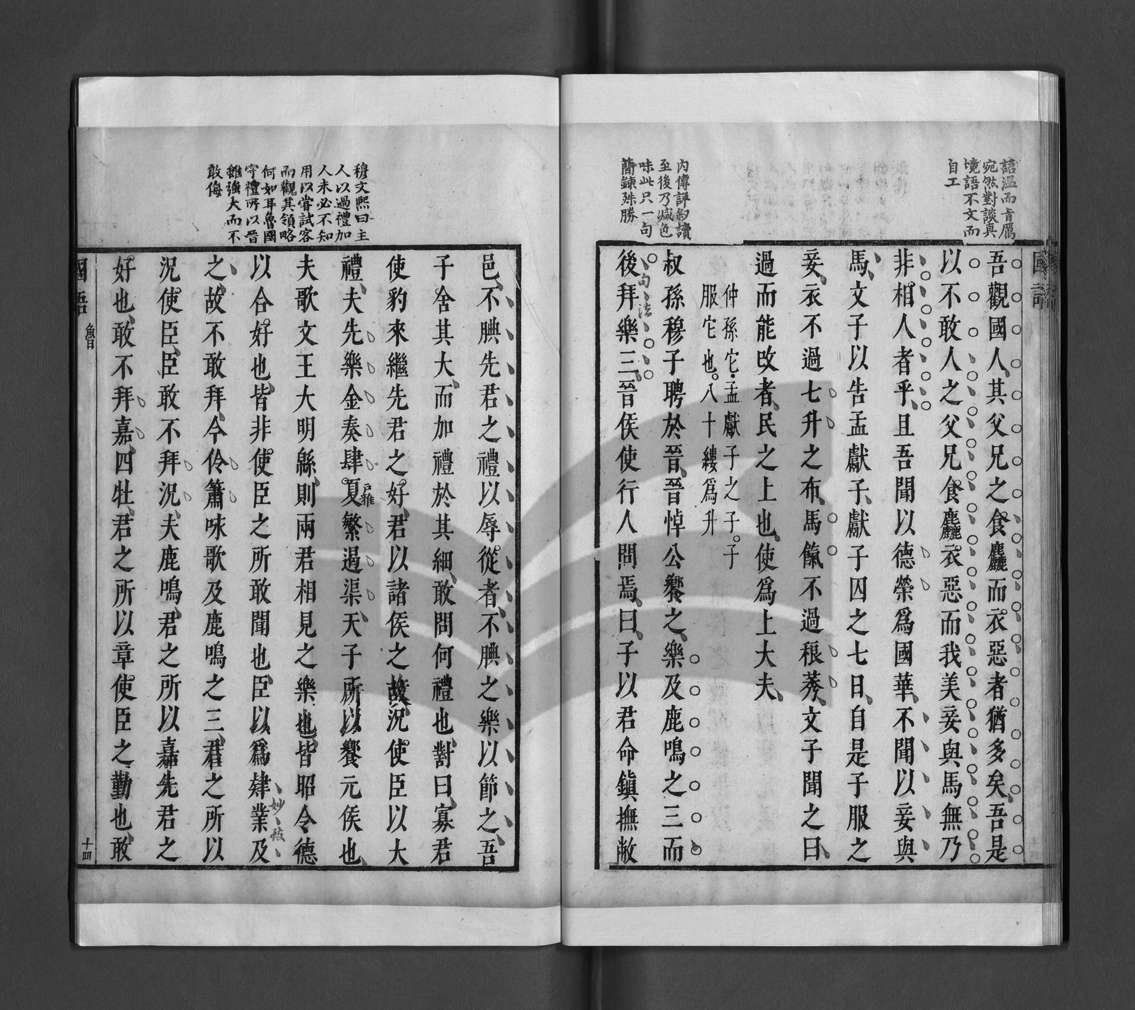 國語
語溫而旨厲
宛然對談真
境語不文而
自工
吾觀國人其父兄之食麤而衣惡者猶多矣吾是
以不敢人之父兄食麤衣惡而我美妾與馬無乃
非相人者乎且吾聞以德榮爲國華不聞以妾與
馬文子以告孟獻子獻子囚之七日自是子服之
妾衣不過七升之布馬餼不過稂莠文子聞之曰
過而能改者民之上也使爲上大夫
仲孫它孟獻子之子子
服它也八十縷爲升
內傳詳初讀
至後乃減色
味此只一句
簡鍊殊勝
叔孫穆子聘於晉晉悼公饗之樂及鹿鳴之三而
後拜樂三晉侯使行人問焉曰子以君命鎮撫敝
句法
邑不腆先君之禮以辱從者不腆之樂以節之吾
子舍其大而加禮於其細敢問何禮也對曰寡君
使豹來繼先君之好君以諸侯之故況使臣以大
穆文熙曰主
人以過禮加
人未必不知
用以嘗試客
而觀其領略
何如耳魯國
守禮所以晉
雖強大而不
敢侮
禮夫先樂金奏肆夏繁遏渠天子所以饗元侯也
夫歌文王大明緜則兩君相見之樂也皆昭令德
以合好也皆非使臣之所敢聞也臣以爲肄業及
妙
之故不敢拜今伶簫咏歌及鹿鳴之三君之所以
況使臣臣敢不拜況夫鹿鳴君之所以嘉先君之
好也敢不拜嘉四牡君之所以章使臣之勤也敢
國語
魯
十四